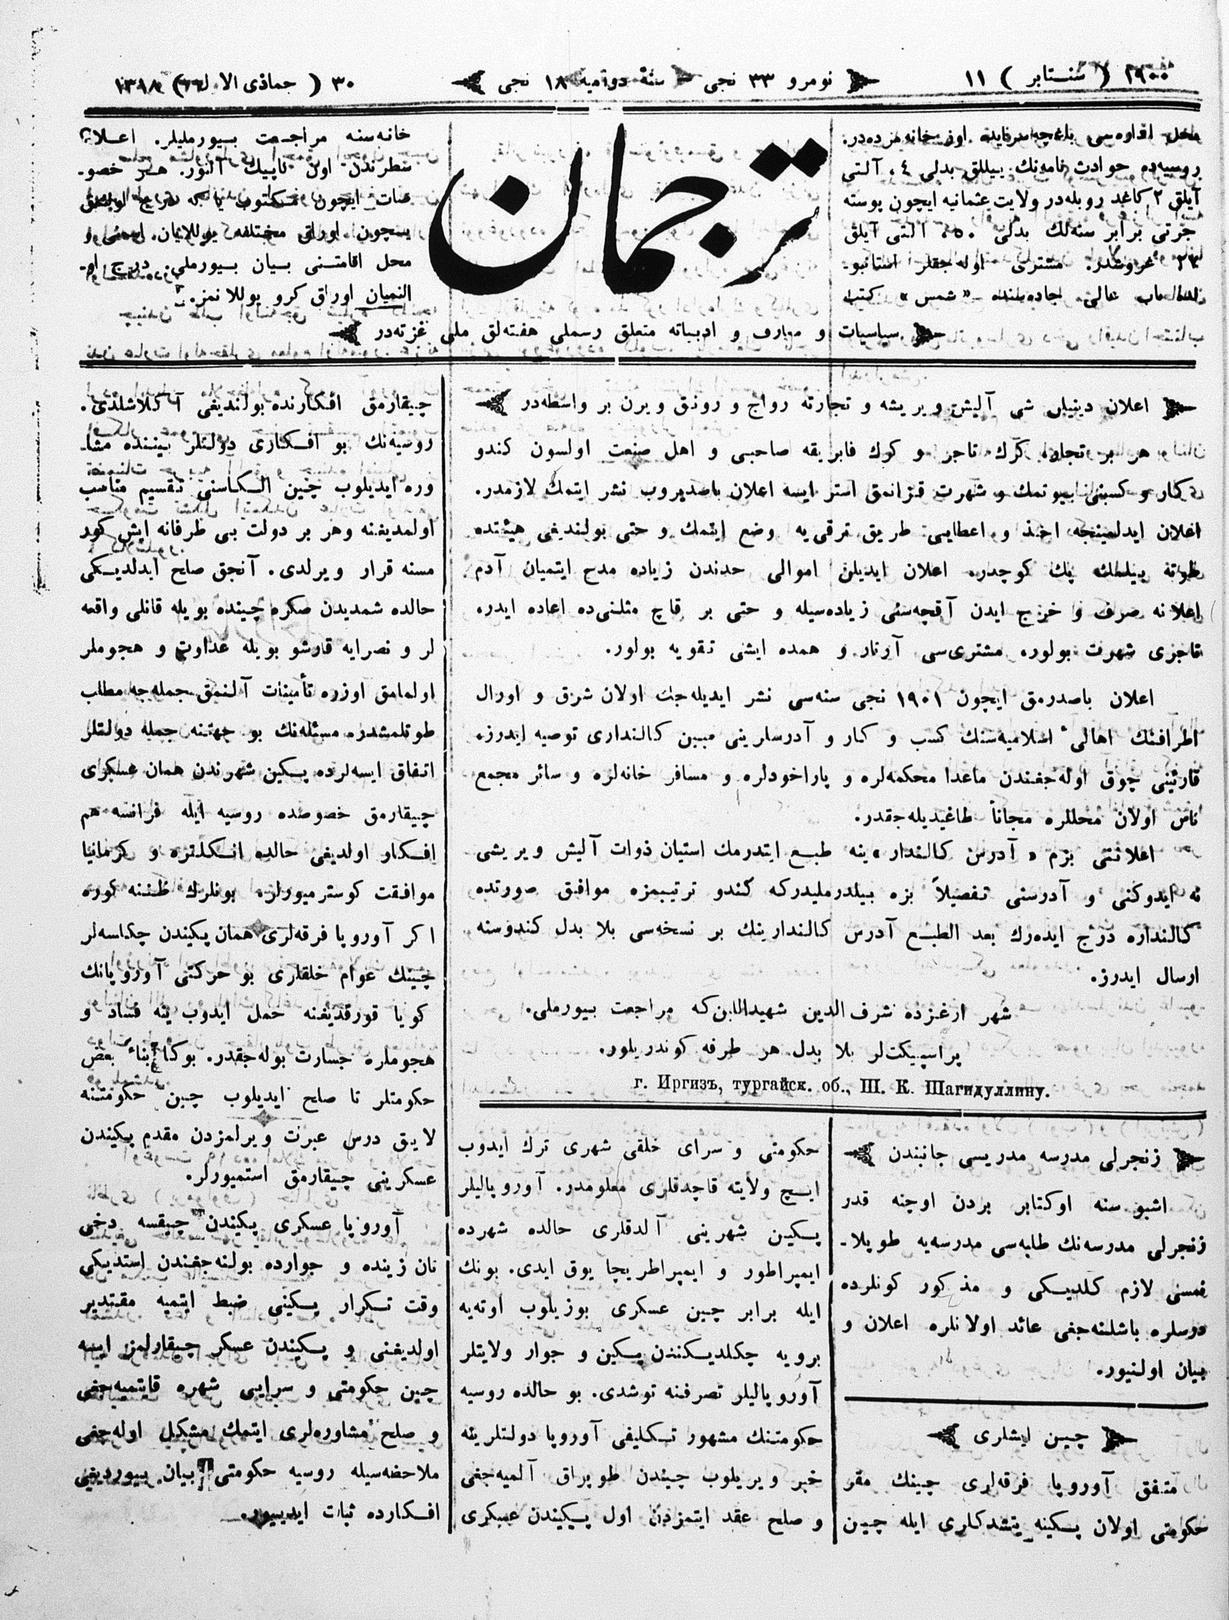 ١٩٠٠ ( سنتابر ) ١١
نومرو ٣٣ نجی
سنۀ دورتمیه ١٨ نجی
٣٠ ( جماذی الاول ) ١٣١٨
محل اداره‌سی باغچه‌سرایده اوز خانه‌مزده‌در.
روسیه‌ده حوادث نامه‌نك ییللق بدلی ٤، آلتی
آیلق ٢ كاغد روبله‌در ولایت عثمانیه ایچون پوسته
جرتی برابر سنه‌لك بدلی ٥٠، آلتی آیلق
غروشدر. مشتری اوله‌جقلر استانبو-
باب عالی جاده‌سنده «شمس» كتب
ترجمان
خانه‌سنه مراجعت بیورملیلر. اعلانا
سطرندن اون كاپیك آلنور. هر خصو-
صات ایچون مكتوب یا كه درج اولنمق
ایچون اوراق مختلفه یوللایان اسمنی و
محل اقامتنی بیان بیورملی. درج او-
لنمیان اوراق كرو یوللانمز.
سیاسیات و معارف و ادبیاته متعلق رسملی هفته‌لق ملی غزته‌در
اعلان دینیلن شی آلیش ویریشه و تجارته رواج و رونق ویرن بر واسطه‌در
هر بر تجارا كرك تاجر و كرك فابریقه صاحبی و اهل صنعت اولسون كندو
كار و كسبنی بیوتمك و شهرت قزانمق استر ایسه اعلان باصدیروب نشر ایتمك لازمدر.
اعلان ایدلمینجه اخذ و اعطایی طریق ترقی‌یه وضع ایتمك و حتی بولندیغی هیئتده
طوته بیلمك پك كوچدر. اعلان ایدیلن اموالی حدندن زیاده مدح ایتمیان آدم
اعلانه صرف و خرج ایدن آقچه‌سنی زیاده‌سیله و حتی بر قاچ مثلنی‌ده اعاده ایدر.
تاجری شهرت بولور. مشتری‌سی آرتار و همده ایشی تقویه بولور.
اعلان باصدرمق ایچون ١٩٠١ نجی سنه‌سی نشر ایدیله‌جك اولان شرق و اورال
اطرافنك اهالیٔ اسلامیه‌سنك كسب و كار و آدرسلرینی مبین كالنداری توصیه ایدرز.
قارئینی چوق اوله‌جغندن ماعدا محكمه‌لره و پاراخودلره و مسافر خانه‌لره و سائر مجمع
ناس اولان محللره مجاناً طاغیدیله‌جقدر.
اعلاننی بزم «آدرس كالندار»ینه طبع ایتدرمك استیان ذوات آلیش ویریشی
نه ایدوكنی و آدرسنی تفصیلاً بزه بیلدرملیدركه كندو ترتیبمزه موافق صورتده
كالنداره درج ایده‌رك بعد الطبع آدرس كالندارینك بر نسخه‌سی بلا بدل كندوسنه
ارسال ایدرز.
شهر ارغزده شرف الدین شهیداللین‌كه مراجعت بیورملی.
پراسپیكت‌لر بلا بدل هر طرفه كوندریلور.
г. Иргизъ, тургайск. об., Ш. К. Шагидуллину.
زنجرلی مدرسه مدریسی جانبندن
اشبو سنه اوكتابر بردن اوچنه قدر
زنجرلی مدرسه‌نك طلبه‌سی مدرسه‌یه طوپلا-
نمسی لازم كلدیكی و مذكور كونلرده
درسلره باشلنه‌جغی عائد اولانلره اعلان و
بیان اولنیور.
چین ایشلری
متفق آوروپا فرقه‌لری چینك مقر
حكومتی اولان پكینه یتشدكلری ایله چین
حكومتی و سرای خلقی شهری ترك ایدوب
ایچ ولایته قاچدقلری معلومدر. آوروپالیلر
پكین شهرینی آلدقلری حالده شهرده
ایمپراطور و ایمپراطریچا یوق ایدی. بونك
ایله برابر چین عسكری بوزیلوب اوته‌یه
برویه چكلدیكندن پكین و جوار ولایتلر
آوروپالیلر تصرفنه توشدی. بو حالده روسیه
حكومتنك مشهور تكلیفی آوروپا دولتلرینه
خبر ویریلوب چیندن طوپراق آلمیه‌جغی
و صلح عقد ایتمزدن اول پكیندن عسكری
چیقارمق افكارنده بولندیغی آكلاشلدی.
روسیه‌نك بو افكاری دولتلر بیننده مشا-
وره ایدیلوب چین الكاسنی تقسیم مناسب
اولمدیغنه وهر بر دولت بی طرفانه ایش كور
مسنه قرار ویرلدی. آنجق صلح ایدلدیكی
حالده شمدیدن صكره چینده بویله قانلی واقعه
لر و نصرایه قارشو بویله عداوت و هجوملر
اولمامق اوزره تأمینات آلنمق جمله‌جه مطلب
طوتلمشدر. مسئله‌نك بو جهتنه جمله دولتلر
اتفاق ایسه‌لرده پكین شهرندن همان عسكری
چیقارمق خصوصده روسیه ایله فرانسه هم
افكار اولدیغی حالده انكلتره و كرمانیا
موافقت كوسترمیورلر. بونلرك ظننه كوره
اكر آوروپا فرقه‌لری همان پكیندن چكلسه‌لر
چینك عوام خلقلری بو حركتی آوروپانك
كویا قورقدیغنه حمل ایدوب ینه فساد و
هجوملره جسارت بوله‌جقدر. بوكا بناءً بعض
حكومتلر تا صلح ایدیلوب چین حكومتنه
لایق درس عبرت ویرلمزدن مقدم پكیندن
عسكرینی چیقارمق استمیورلر.
آوروپا عسكری پكیندن چیقسه دخی
تیان زینده و جوارده بولنه‌جغندن استدیكی
وقت تكرار پكینی ضبط ایتمیه مقتدیر
اولدیغنی و پكیندن عسكر چیقارلمز ایسه
چین حكومتی و سرایی شهره قایتمیه‌جغی
و صلح مشاوره‌لری ایتمك مشكل اوله‌جغی
ملاحضه‌سیله روسیه حكومتی بیان بیوردیغی
افكارده ثبات ایدییور.